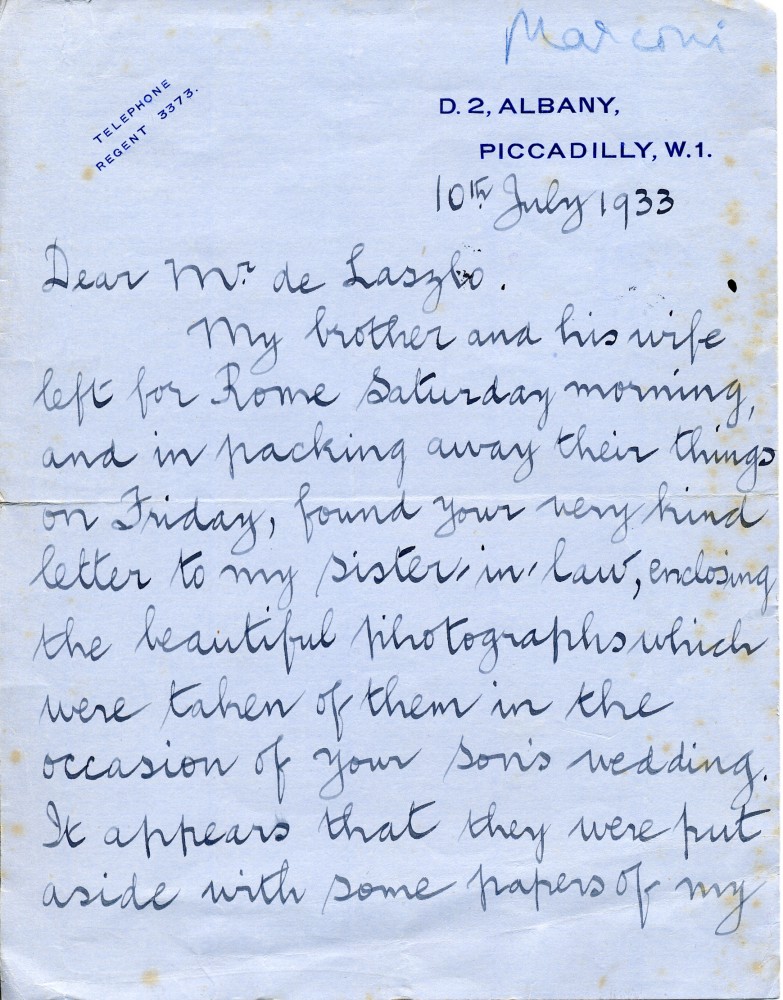 Marconi
TELEPHONE
REGENT 3373.
D. 2, ALBANY,
PICCADILLY, W.1.
10th July 1933
Dear Mr. de Laszlo.
My brother and his wife
left for Rome Saturday morning,
and in packing away their things
on Friday, found your very kind
letter to my sister-in-law, enclosing
the beautiful photographs which
were taken of them in the
occasion of your son's wedding.
It appears that they were put
aside with some papers of my